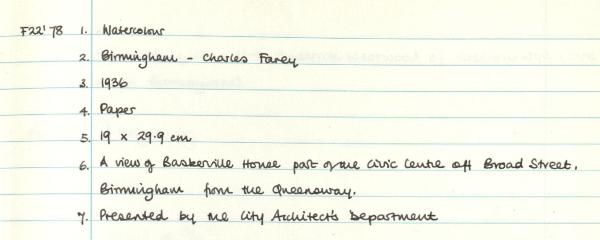 F22' 78 1. Watercolour
2. Birmingham - Charles Farey
3. 1936
4. Paper
5. 19 x 29.9 cm
6. A view of Baskerville House part of the Civic Centre off Broad Street,
Birmingham from the Queensway.
7. Presented by the City Architect's Department